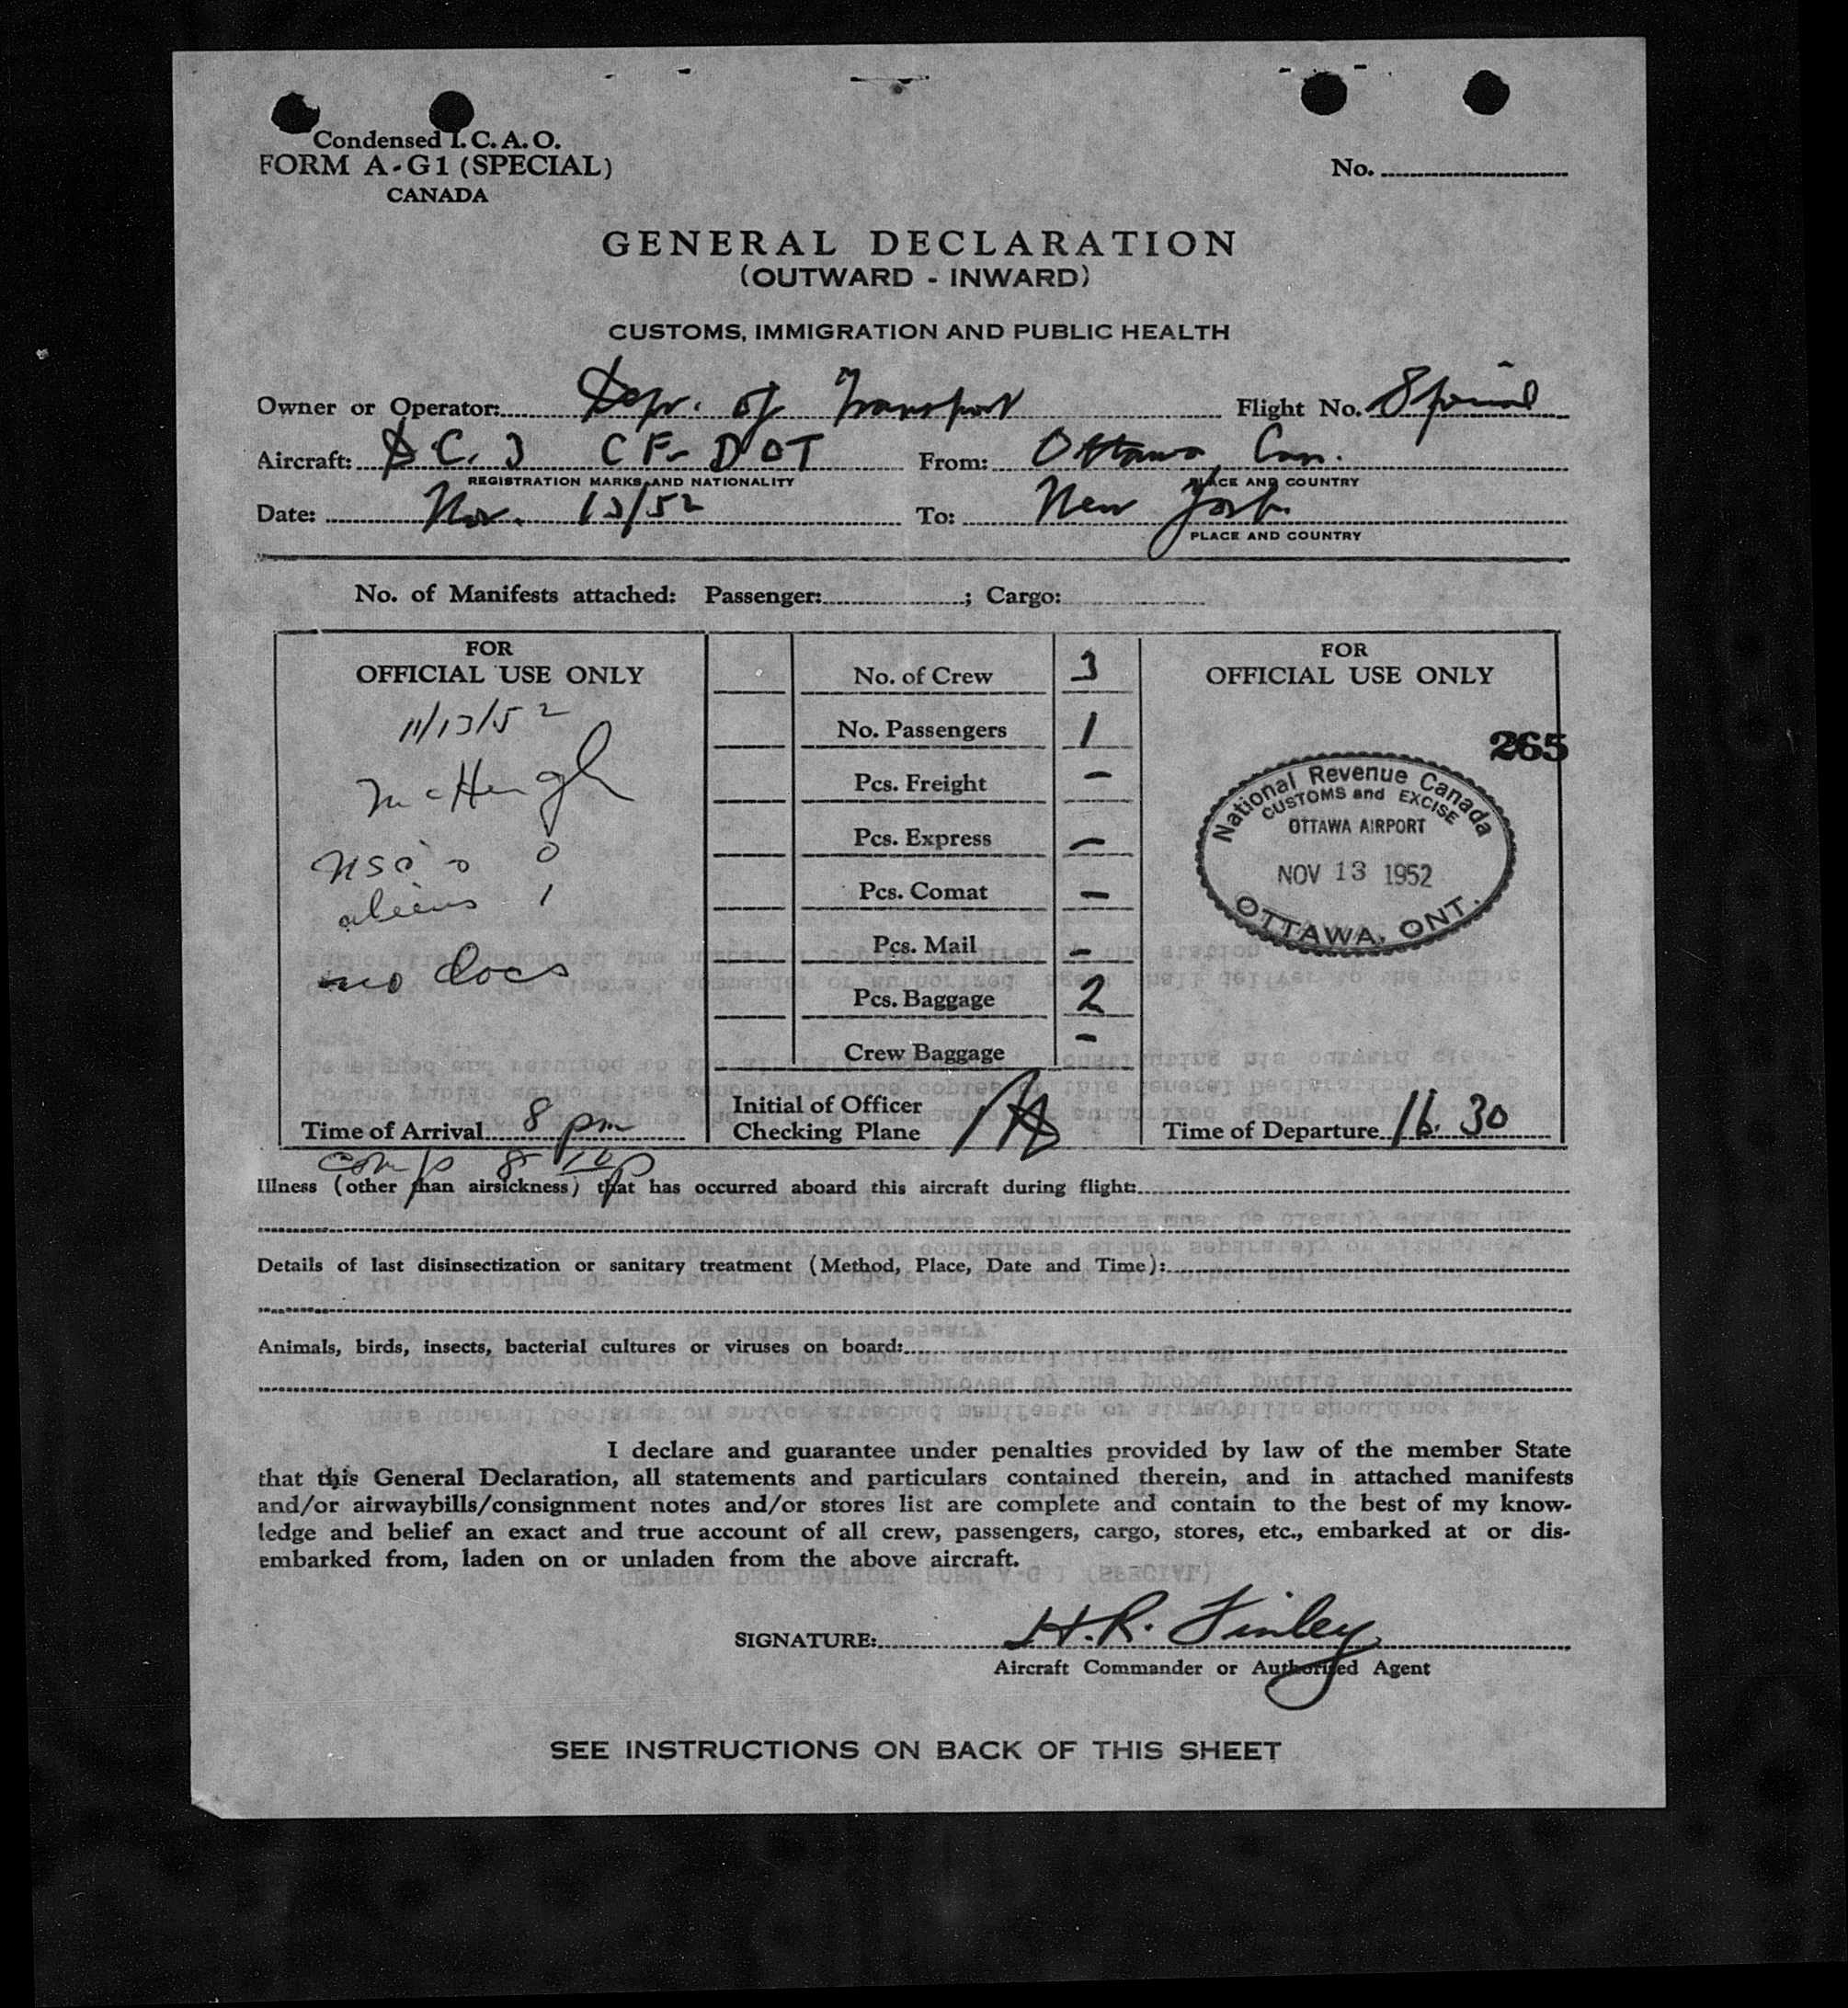 Condensed I.C.A.O.
FORM A-G1 (SPECIAL)
CANADA
No.
GENERAL DECLARATION
(OUTWARD - INWARD)
CUSTOMS, IMMIGRATION AND PUBLIC HEALTH
Owner or Operator: Dept. of Transport Flight No. Special
Aircraft: D.C. 3 CF-DOT From: Ottawa, Can.
REGISTRATION MARKS AND NATIONALITY PLACE AND COUNTRY
Date: Nov. 13/52 To: New York
PLACE AND COUNTRY
No. of Manifests attached: Passenger: ; Cargo:
FOR
OFFICIAL USE ONLY
11/13/52
McHugh
aliens 1
no docs
Time of Arrival 8 pm
No. of Crew 3
No. Passengers 1
Pcs. Freight -
Pcs. Express -
Pcs. Comat -
Pcs. Mail -
Pcs. Baggage 2
Crew Baggage -
Initial of Officer
Checking Plane
FOR
OFFICIAL USE ONLY
265
National Revenue Canada
CUSTOMS and EXCISE
OTTAWA AIRPORT
NOV 13 1952
OTTAWA, ONT.
Time of Departure 16.30
Illness (other than airsickness) that has occurred aboard this aircraft during flight:
Details of last disinsectization or sanitary treatment (Method, Place, Date and Time):
Animals, birds, insects, bacterial cultures or viruses on board:
I declare and guarantee under penalties provided by law of the member State
that this General Declaration, all statements and particulars contained therein, and in attached manifests
and/or airwaybills/consignment notes and/or stores list are complete and contain to the best of my know-
ledge and belief an exact and true account of all crew, passengers, cargo, stores, etc., embarked at or dis-
embarked from, laden on or unladen from the above aircraft.
SIGNATURE: H.R. Finley
Aircraft Commander or Authorized Agent
SEE INSTRUCTIONS ON BACK OF THIS SHEET